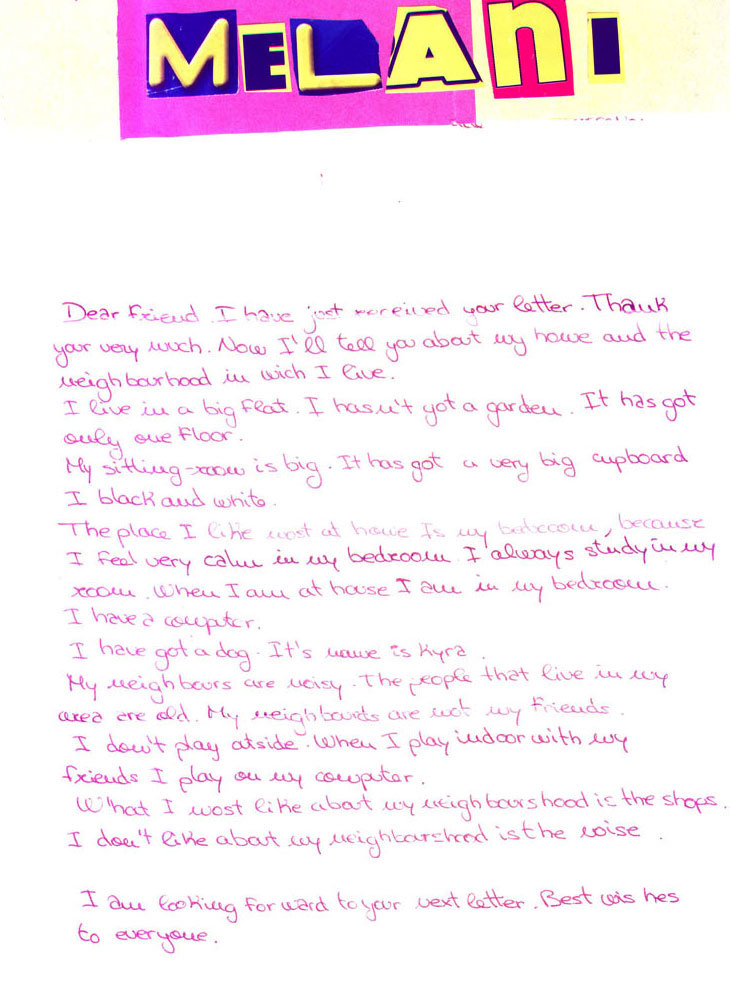 MELANI
Dear friend. I have just rereived your letter. Thank
your very much. Now I'll tell you about my home and the
neighbourhood in wich I live.
I live in a big flat. I hasn't got a garden. It has got
only one floor.
My sitting-room is big. It has got a very big cupboard
I black and white.
The place I like most at home Is my bedroom, because
I feel very calm in my bedroom. I always study in my
room. When I am at house I am in my bedroom.
I have a computer.
I have got a dog. It's name is Kyra.
My neighbours are noisy. The people that live in my
area are old. My neighbourds are not my friends.
I don't play atside. When I play indoor with my
friends I play on my computer.
What I most like about my neighbourshood is the shops.
I don't like about my neighbourshood is the noise.
I am looking forward to your next letter. Best wishes
to everyone.